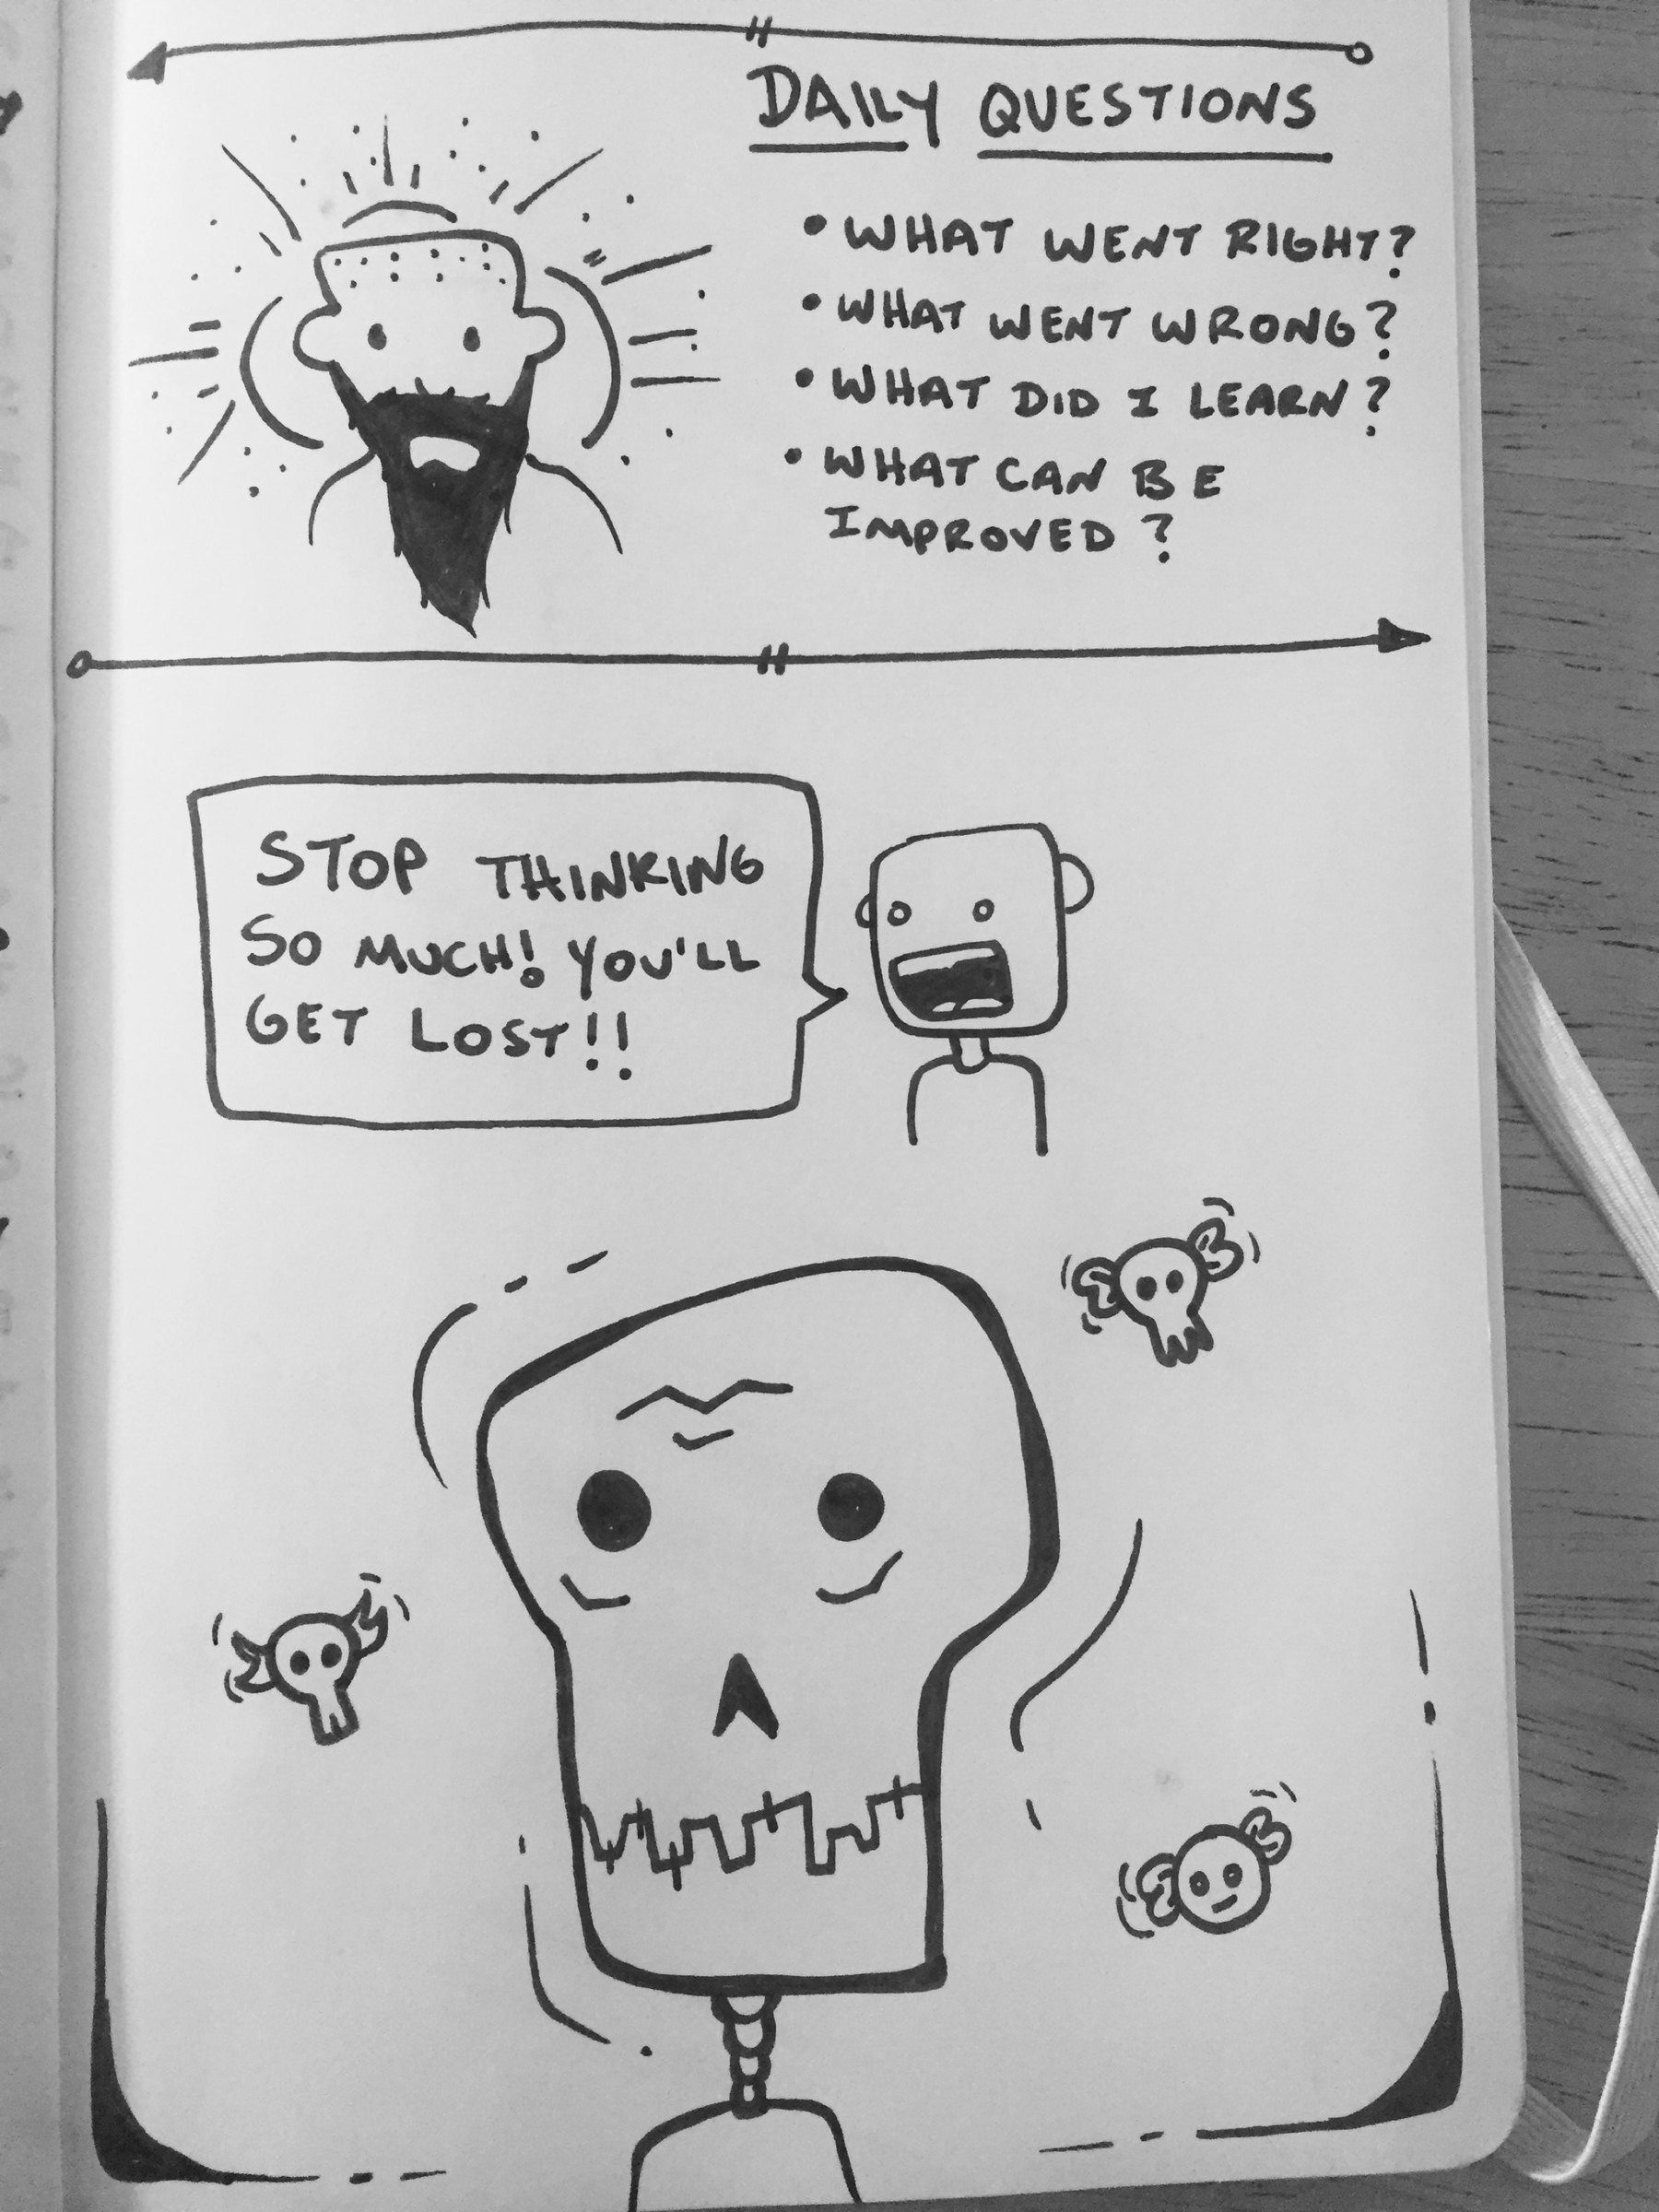 DAILY QUESTIONS
• WHAT WENT RIGHT?
• WHAT WENT WRONG?
• WHAT DID I LEARN?
• WHAT CAN BE
IMPROVED?
STOP THINKING
SO MUCH! YOU'LL
GET LOST!!